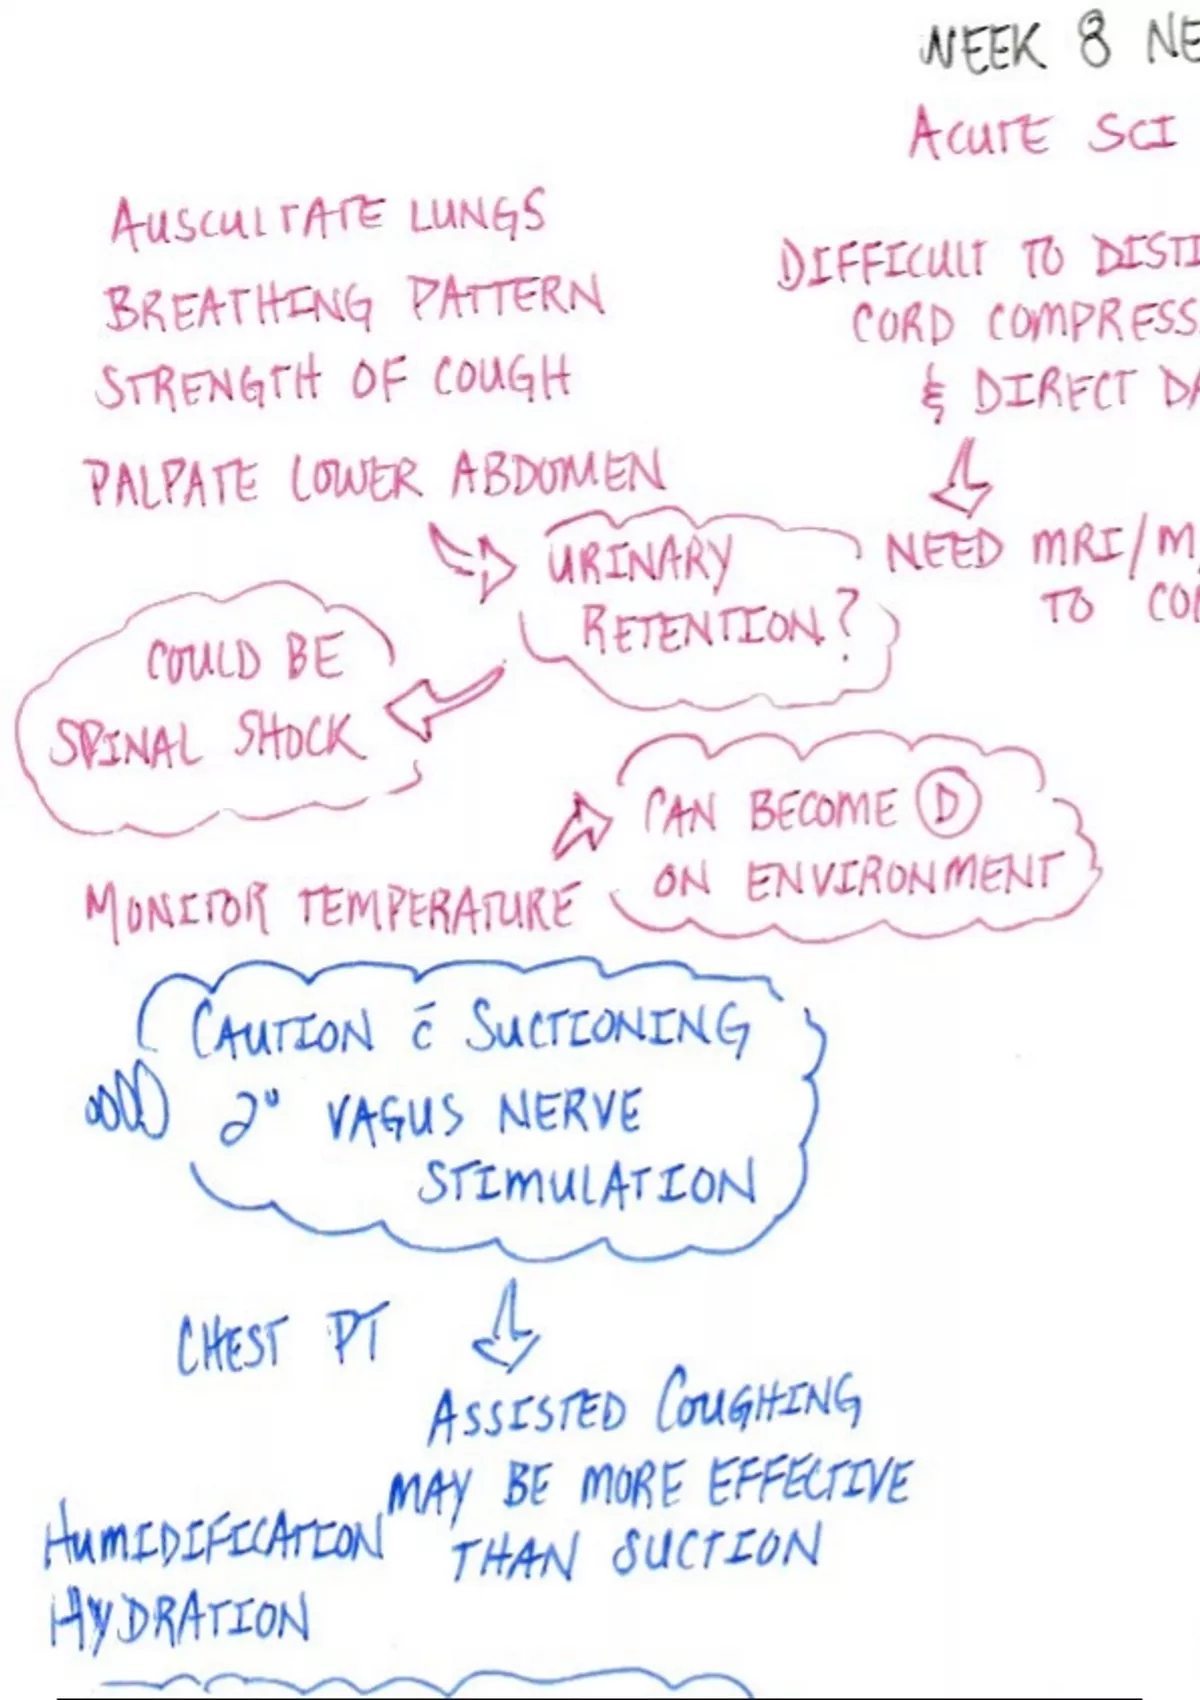 WEEK 8 NE
ACUTE SCI
AUSCULTATE LUNGS
BREATHING PATTERN
STRENGTH OF COUGH
PALPATE LOWER ABDOMEN
URINARY
RETENTION?
COULD BE
SPINAL SHOCK
MONITOR TEMPERATURE
CAN BECOME D
ON ENVIRONMENT
DIFFICULT TO DISTI
CORD COMPRESS
& DIRECT DA
NEED MRI/M
TO CO
CAUTION c̄ SUCTIONING
2° VAGUS NERVE
STIMULATION
CHEST PT
ASSISTED COUGHING
MAY BE MORE EFFECTIVE
THAN SUCTION
HUMIDIFICATION
HYDRATION